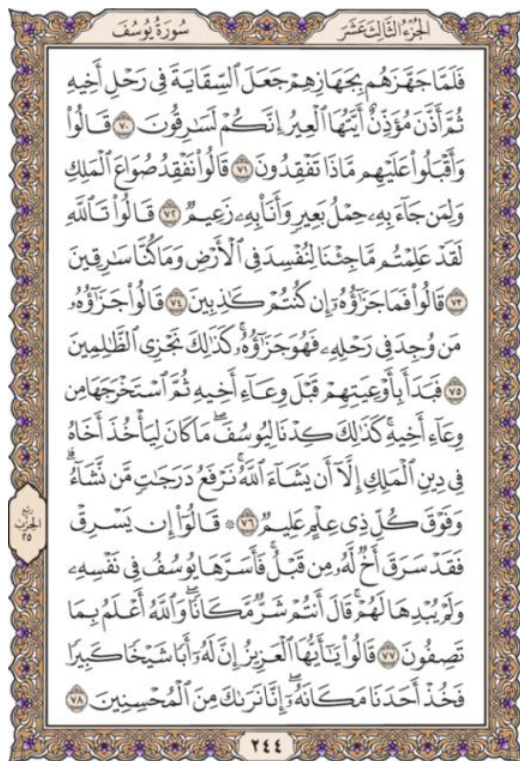 الجُزْءُ الثَّالِثَ عَشَرَ
سُورَةُ يُوسُفَ
فَلَمَّا جَهَّزَهُم بِجَهَازِهِمۡ جَعَلَ ٱلسِّقَايَةَ فِي رَحۡلِ أَخِيهِ
ثُمَّ أَذَّنَ مُؤَذِّنٌ أَيَّتُهَا ٱلۡعِيرُ إِنَّكُمۡ لَسَٰرِقُونَ ٧٠ قَالُواْ
وَأَقۡبَلُواْ عَلَيۡهِم مَّاذَا تَفۡقِدُونَ ٧١ قَالُواْ نَفۡقِدُ صُوَاعَ ٱلۡمَلِكِ
وَلِمَن جَآءَ بِهِۦ حِمۡلُ بَعِيرٖ وَأَنَا۠ بِهِۦ زَعِيمٞ ٧٢ قَالُواْ تَٱللَّهِ
لَقَدۡ عَلِمۡتُم مَّا جِئۡنَا لِنُفۡسِدَ فِي ٱلۡأَرۡضِ وَمَا كُنَّا سَٰرِقِينَ
٧٣ قَالُواْ فَمَا جَزَٰٓؤُهُۥٓ إِن كُنتُمۡ كَٰذِبِينَ ٧٤ قَالُواْ جَزَٰٓؤُهُۥ
مَن وُجِدَ فِي رَحۡلِهِۦ فَهُوَ جَزَٰٓؤُهُۥۚ كَذَٰلِكَ نَجۡزِي ٱلظَّٰلِمِينَ
٧٥ فَبَدَأَ بِأَوۡعِيَتِهِمۡ قَبۡلَ وِعَآءِ أَخِيهِ ثُمَّ ٱسۡتَخۡرَجَهَا مِن
وِعَآءِ أَخِيهِۚ كَذَٰلِكَ كِدۡنَا لِيُوسُفَۖ مَا كَانَ لِيَأۡخُذَ أَخَاهُ
فِي دِينِ ٱلۡمَلِكِ إِلَّآ أَن يَشَآءَ ٱللَّهُۚ نَرۡفَعُ دَرَجَٰتٖ مَّن نَّشَآءُۗ
وَفَوۡقَ كُلِّ ذِي عِلۡمٍ عَلِيمٞ ٧٦ ۞ قَالُوٓاْ إِن يَسۡرِقۡ
فَقَدۡ سَرَقَ أَخٞ لَّهُۥ مِن قَبۡلُۚ فَأَسَرَّهَا يُوسُفُ فِي نَفۡسِهِۦ
وَلَمۡ يُبۡدِهَا لَهُمۡۚ قَالَ أَنتُمۡ شَرّٞ مَّكَانٗاۖ وَٱللَّهُ أَعۡلَمُ بِمَا
تَصِفُونَ ٧٧ قَالُواْ يَٰٓأَيُّهَا ٱلۡعَزِيزُ إِنَّ لَهُۥٓ أَبٗا شَيۡخٗا كَبِيرٗا
فَخُذۡ أَحَدَنَا مَكَانَهُۥٓۖ إِنَّا نَرَىٰكَ مِنَ ٱلۡمُحۡسِنِينَ ٧٨
ربع
الحزب
٢٥
٢٤٤